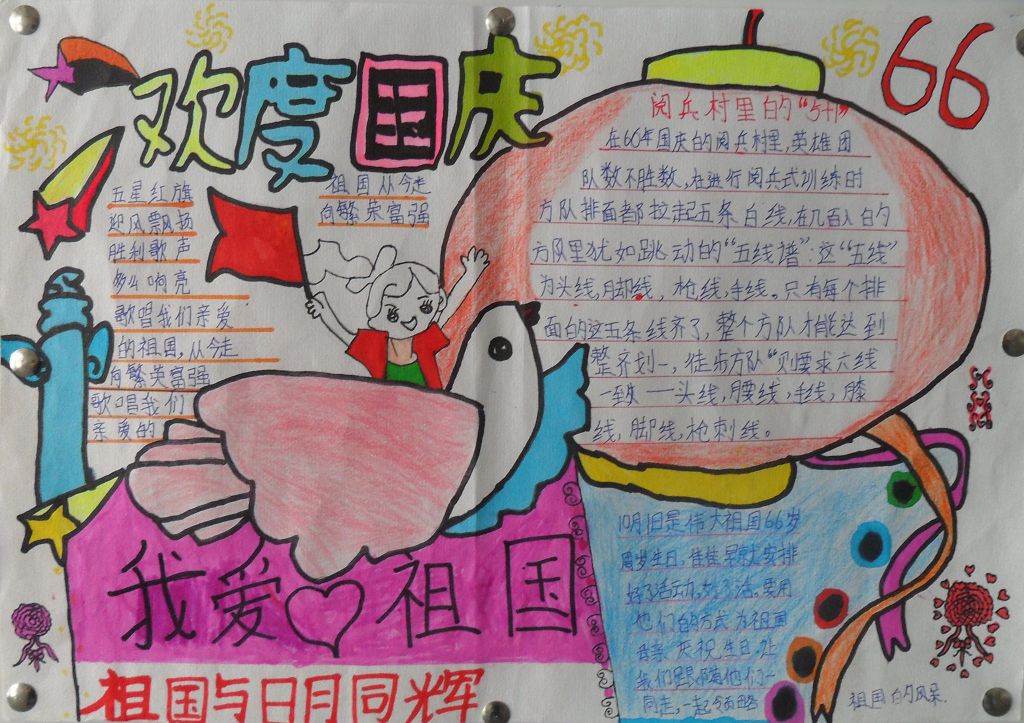 欢度国庆
66
五星红旗
迎风飘扬
胜利歌声
多么响亮
歌唱我们亲爱
的祖国,从今走
向繁荣富强
歌唱我们
亲爱的
祖国从今走
向繁荣富强
阅兵村里的
在60年国庆的阅兵村里,英雄团
队数不胜数,在进行阅兵式训练时
方队排面都拉起五条白线,在几百人的
方队里犹如跳动的“五线谱”:这“五线”
为头线,脚线,枪线,手线。只有每个排
面的这五条线齐了,整个方队才能达到
整齐划一,徒步方队“则要求六线
一致——头线,腰线,手线,膝
线,脚线,枪刺线。
我爱祖国
祖国与日月同辉
10月1日是伟大祖国66岁
周岁生日,佳佳早就安排
好了活动,要用
他们的方式为祖国
母亲庆祝生日,让
我们跟随他们一
同走,一起领略
祖国的风采.